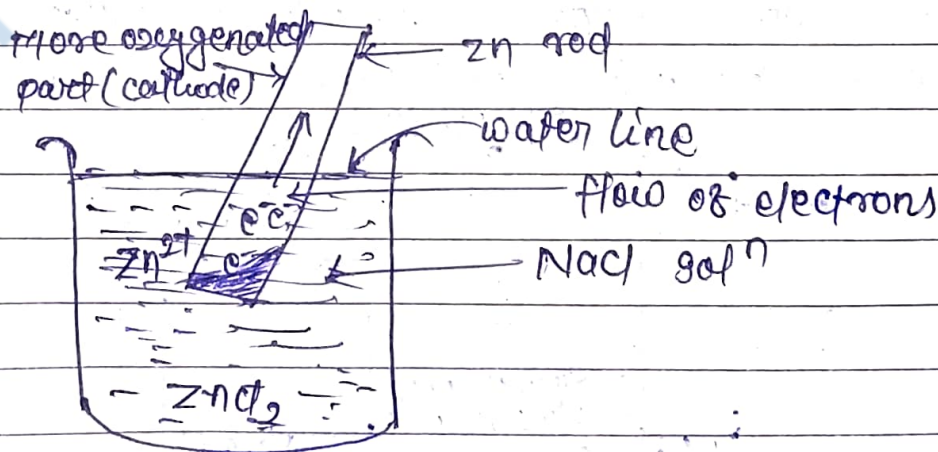 More oxygenated
part (cathode)
Zn rod
water line
flow of electrons
e e
Zn2+
e
NaCl soln
ZnCl2